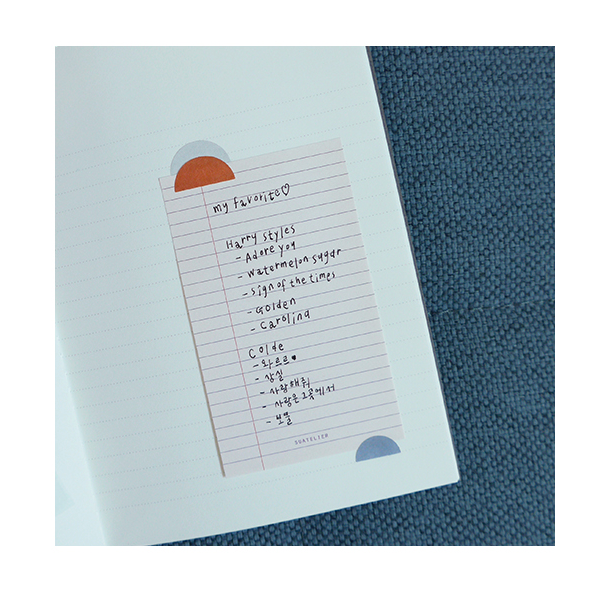 my favorite♡
Harry styles
- Adore you
- Watermelon sugar
- sign of the times
- Golden
- Carolina
Colde
- 와르르♥
- 상실
- 사랑해줘
- 사랑은 그곳에서
- 보물
SUATELIER